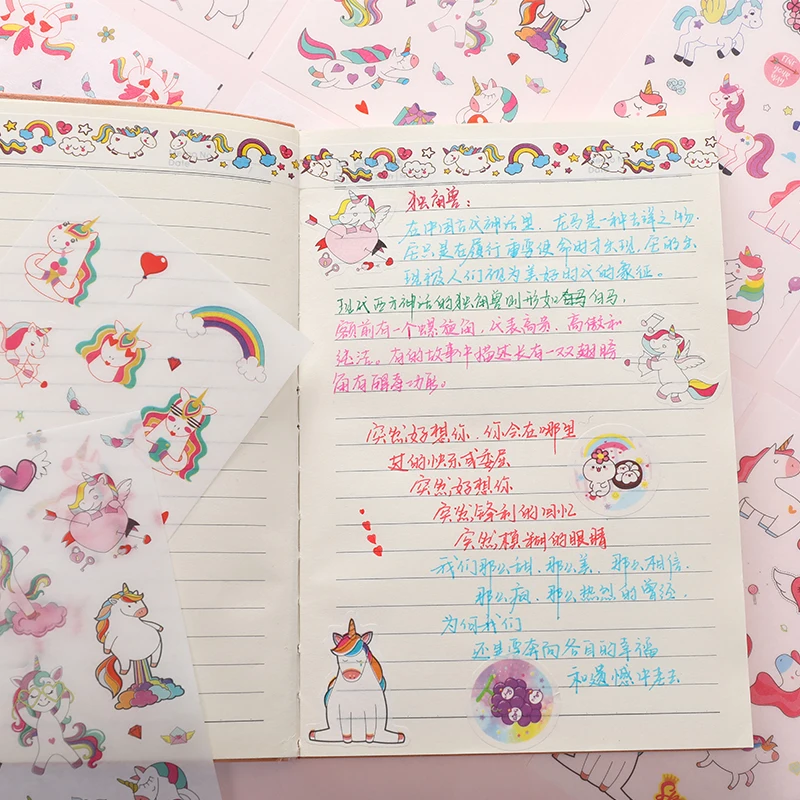 独角兽：
在中国古代神话里，龙马是一种吉祥之物，
居只是在履行重要使命时才出现，居的出
现被人们视为美好时代的象征。
现代西方神话的独角兽则形如白马，
额前有一个螺旋角，代表高贵、高傲和
纯洁。有的故事中描述长有一双翅膀
角有解毒功能。
突然好想你，你会在哪里
过的快乐或委屈
突然好想你
突然锋利的回忆
突然模糊的眼睛
我们那么甜、那么美、那么相信、
那么疯、那么热烈的曾经
为何我们
还是要奔向各自的幸福
和遗憾中老去